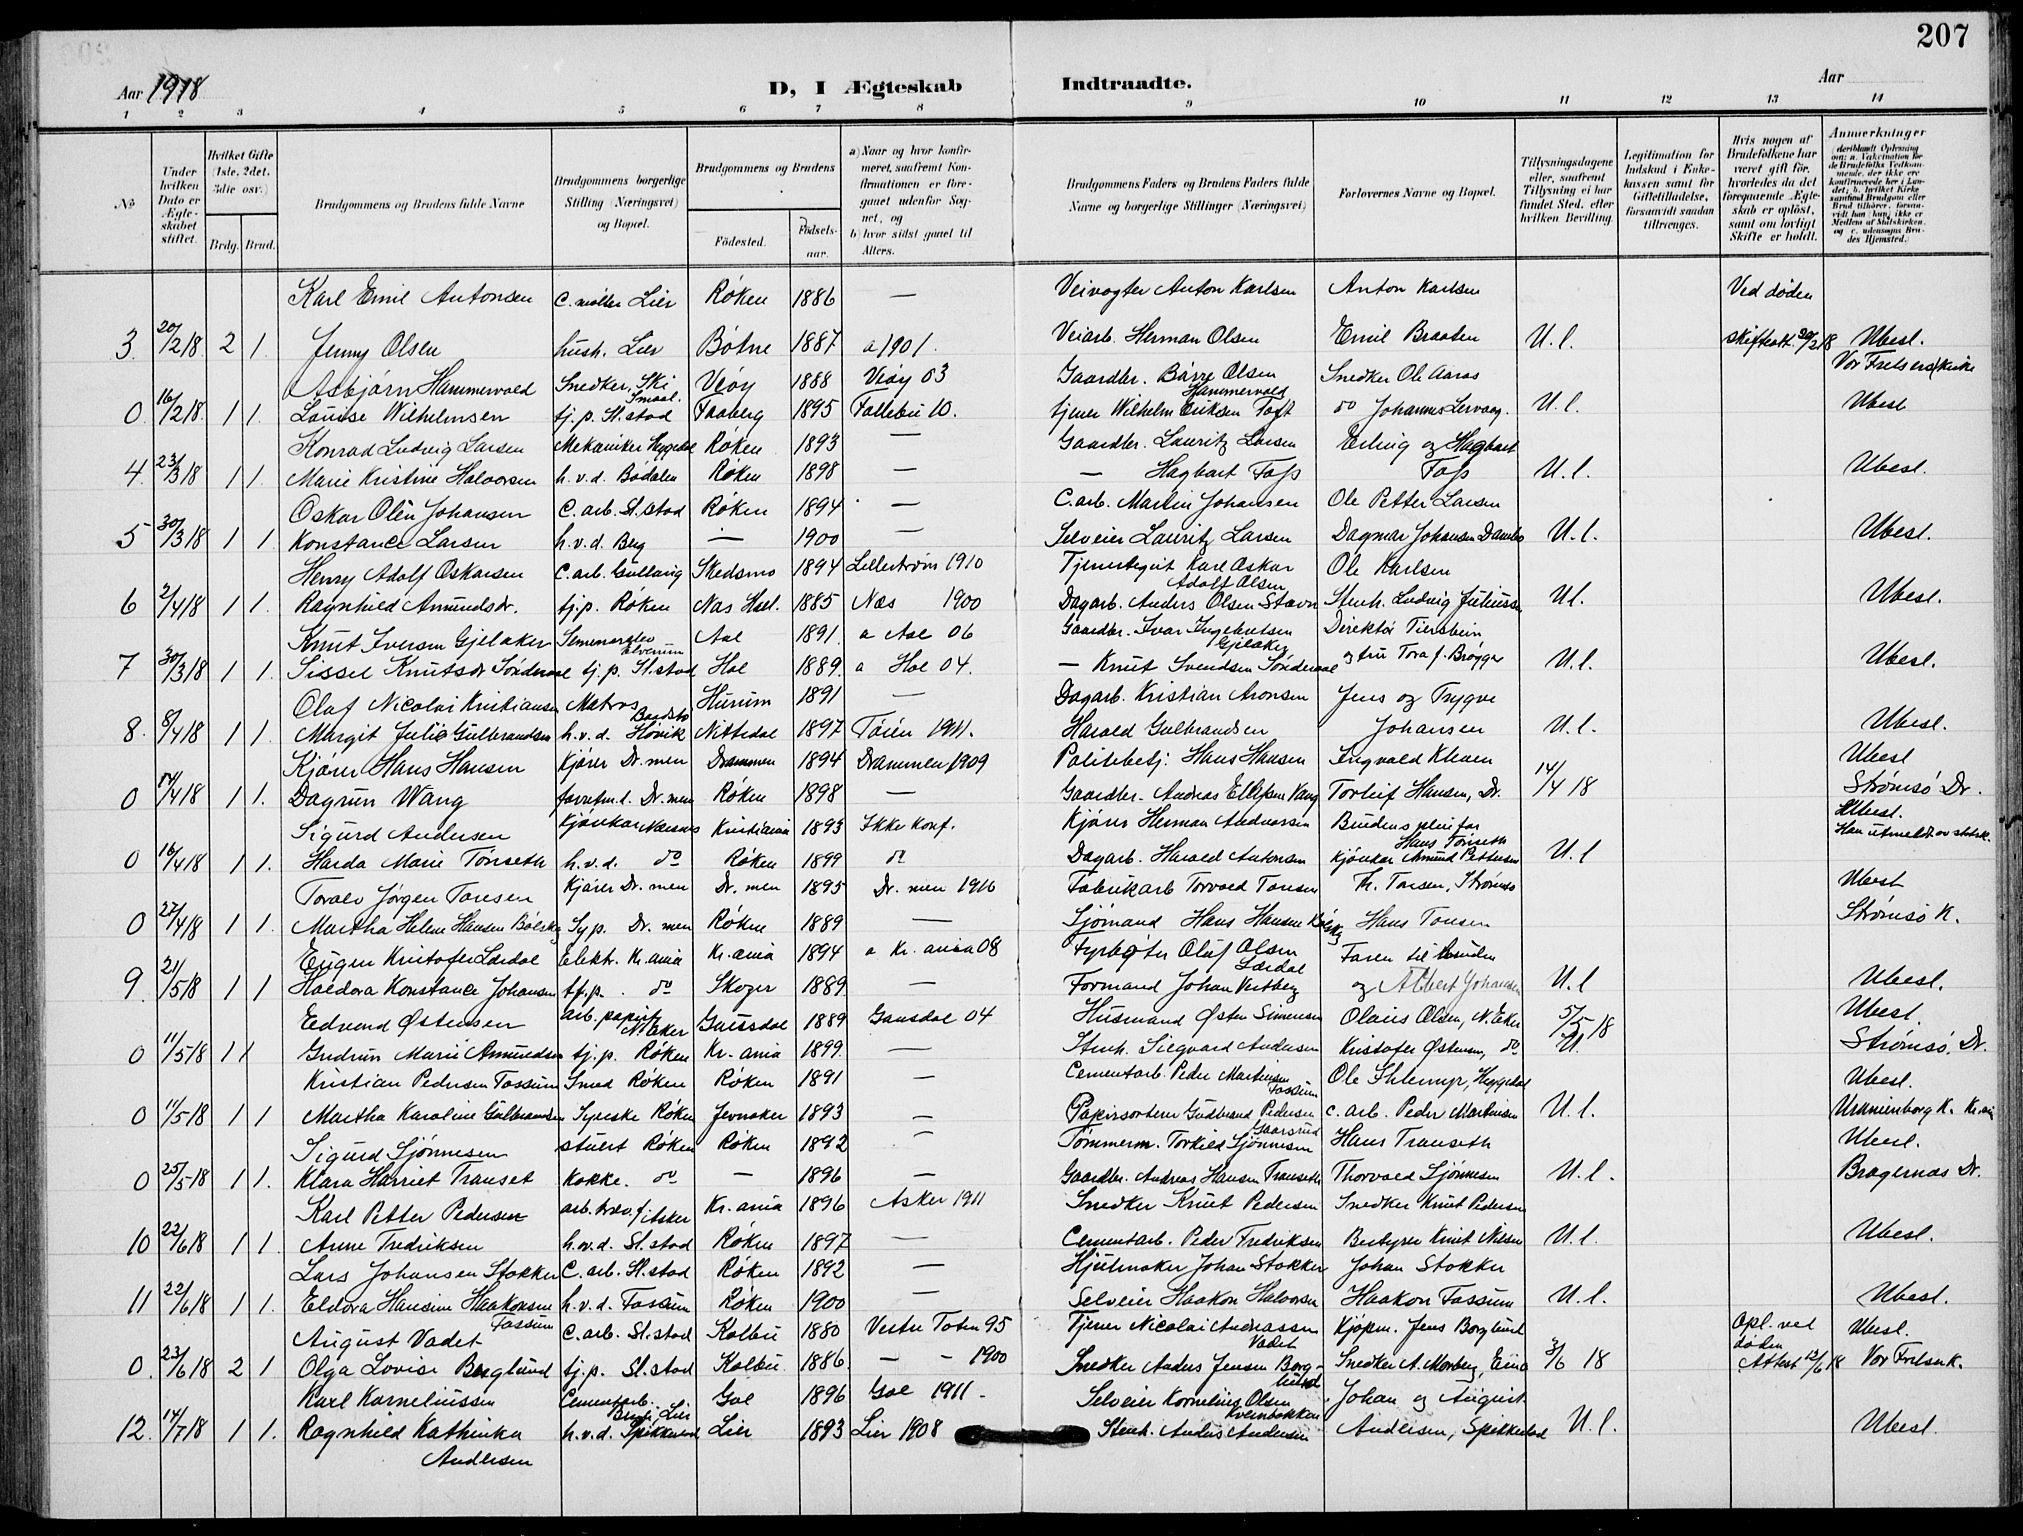 207
Aar 1918
D, I Ægteskab Indtraadte.
Aar
1 2 3 4 5 6 7 8 9 10 11 12 13 14
No
Under hvilken Dato er Ægteskabet stiftet.
Hvilket Gifte (1ste, 2det, 3die osv.)
Brdg. Brud.
Brudgommens og Brudens fulde Navne
Brudgommens borgerlige Stilling (Næringsvei) og Bopæl.
Brudgommens og Brudens
Fødested. Fødselsaar.
a) Naar og hvor konfirmeret, saafremt Konfirmationen er foregaaet udenfor Sognet, og
b) hvor sidst gaaet til Alters.
Brudgommens Faders og Brudens Faders fulde Navne og borgerlige Stillinger (Næringsvei)
Forlovernes Navne og Bopæl.
Tillysningsdagene eller, saafremt Tillysning ei har fundet Sted, efter hvilken Bevilling.
Legitimation for Indskud i Enkekassen samt for Giftetilladelse, forsaavidt saadan tiltrænges.
Hvis nogen af Brudefolkene har været gift før, hvorledes da det foregaaende Ægteskab er opløst, samt om lovligt Skifte er holdt.
Anmerkninger
Karl Emil Antonsen C. møller Lier Røken 1886 — Veivogter Anton Karlsen Anton Karlsen Ved døden
3. 20/2 18 2 1. Jenny Olsen hush. Lier Botne 1887 a 1901. Veiarb. Herman Olsen Emil Braaten U. l. Skifteatt. 20/2 18 Ubesl.
Asbjørn Hammervold Snedker, Ski Veøy 1888 Veøy 03 Gaardbr. Børre Olsen Hammervold Snedker Ole Aaras Vor Frelsers kirke
0. 16/2 18. 1 1. Louise Wilhelmsen tj. p. Sl.stad Faaberg 1895 Follebu 10. tjener Wilhelm Eriksen Toft do Johannes Lervaag. U. l. Ubesl
Konrad Ludvig Larsen Mekaniker Heggedal Røken 1893 — Gaardbr. Lauritz Larsen Erling og Hagbart
4. 23/3 18 1 1. Marie Kristine Halvorsen h. v. d. Bødalen Røken 1898 — — Hagbart Foss Foss U. l. Ubesl.
Oskar Olin Johansen C. arb. Sl.stad Røken 1894 — C. arb. Martin Johansen Ole Petter Larsen
5 30/3 18 1 1 Konstance Larsen h. v. d. Berg — 1900 — Selveier Lauritz Larsen Dagmar Johansen U. l. Ubesl.
Henry Adolf Oskarsen C. arb. Gullaug Skedsmo 1894 Lillestrøm 1910 Karl Oskar Adolf Olsen Ole Karlsen
6 2/4 18 1 1. Ragnhild Amundsdr. tj. p. Røken Nas Hal. 1885 Næs 1900 Dagarb. Anders Olsen Stavn Stenh. Ludvig Juliussen U l. Ubesl.
Knut Iversen Gjelaker Seminarelev Elverum Aal 1891. a Aal 06 Gaardbr. Ivar Ingebretsen Gjelaker Direktør
7 30/3 18 1 1. Sissel Knutsdr Sønderaal tj. p. Sl.stad Hol 1889. a Hol 04. — Knut Svendsen Sønderaal og fru Tora f. Brøgger U. l. Ubesl.
Olaf Nicolai Kristiansen Matros Hurum 1891 — Dagarb. Kristian Aronsen Jens og Trygve
8. 8/4 18 1 1. Margit Julie Gulbrandsen h. v. d. Høvik Nittedal 1897 Tøien 1911. Harald Gulbrandsen Johansen U. l. Ubesl.
Kjører Hans Hansen Kjører Dr. men Drammen 1894 Drammen 1909 Politibetj. Hans Hansen Ingvald Kleven 14/4 18 Ubesl
0 14/4 18 1 1. Dagrun Wang Dr. men Røken 1898 — Gaardbr. Andreas Ellefsen Vang Torleif Hansen, Dr. Strømsø Dr.
Sigurd Andersen Kristiania 1893 Ikke konf. Kjører Herman Andreassen Brudens Ubesl.
0 16/4 18 1 1. Harda Marie Tønseth h. v. d. do Røken 1899 do Dagarb. Harald Antonsen U. l Han utmeldt av statsk.
Toralv Jørgen Tonsen Kjører Dr. men Dr. men 1895 Dr. men 1916 Fabrikarb Torvald Tonsen Th. Tonsen, Strømsø Ubesl
0 27/4 18 1 1. Martha Helene Hansen Syp. Dr. men Røken 1889 — Sjømand Hans Hansen Hans Tonsen Strømsø K.
Eugen Kristofer Lærdal Elekt. Kr. ania Kr. ania 1894 a Kr. ania 08 Fyrbøter Olaf Olsen Lærdal Faren til bruden
9. 21/5 18 1 1 Haldora Konstance Johansen tj. p. do Skoger 1889 — Formand Johan Vestberg og Albert Johansen U. l Ubesl.
Edvend Østensen arb. N. Eker Gausdal 1889 Gausdal 04 Husmand Østen Simensen Olaus Olsen, N. Eker 5/5 18 Ubesl.
0 11/5 18 1 1 Gudrun Marie Amundsen tj. p. Røken Kr. ania 1899. — Stenh. Sigvard Andersen Kristofer Østensen, do Strømsø. Dr.
Kristian Pedersen Fossum Smed Røken Røken 1891 — Cementarb. Peder Martinsen Fossum Ole Heggedal Ubesl.
0 11/5 18 1 1 Martha Karoline Gulbrandsen Syerske Røken Jevnaker 1893 — Papirsorterer Gudbrand Pedersen Gaarsrud C. arb. Peder Martinsen U. l. Uranienborg K. Kr. ania
Sigurd Sjønnesen stuert Røken Røken 1892 — Tømmerm. Torkild Sjønnesen Hans Transeth Ubesl.
0 25/5 18 1 1. Klara Harriet Transet Kokke. do — 1896 — Gaardbr. Andreas Hansen Transeth Thorvald Sjønnesen U. l. Bragernæs Dr.
Karl Petter Pedersen Asker Kr. ania 1896 Asker 1911 Snedker Knut Pedersen Snedker Knut Pedersen
10 22/6 18 1 1 Anne Fredriksen h. v. d. Sl.stad Røken 1897 — Cementarb. Peder Fredriksen Bestyrer Knut Nilsen U. l. Ubesl.
Lars Johansen Stokker C. arb. Sl.stad Røken 1892 — Hjulmaker Johan Stokker Johan Stokker
11 22/6 18 1 1. Eldora Hansine Haakonsen Fossum h. v. d. Fossum Røken 1900 — Selveier Haakon Halvorsen Haakon Fossum U. l. Ubesl.
August Vadet C. arb. Sl.stad Kolbu 1880 Vestre Toten 95 Tjener Nicolai Andreassen Vadet Kjøpm. Jens Borglund Opl. ved døden Ubesl.
0. 23/6 18 2 1 Olga Lovise Berglund tj. p. Sl.stad Kolbu 1886. — - 1900 Snedker Anders Jensen Borglund Snedker A. Morberg, Eina 3/6 18 Attest 13/6 18 Vor Frelser K.
Karl Korneliussen Cementarb. Lier Gol 1896 Gol 1911. Selveier Kornelius Olsen Kveinbakken Johan og August
12. 14/7 18 1 1. Ragnhild Kathinka Andersen h. v. d. Spikkestad Lier 1893 Lier 1908 Stenh. Anders Andersen Andersen, Spikkestad U. l. Ubesl.